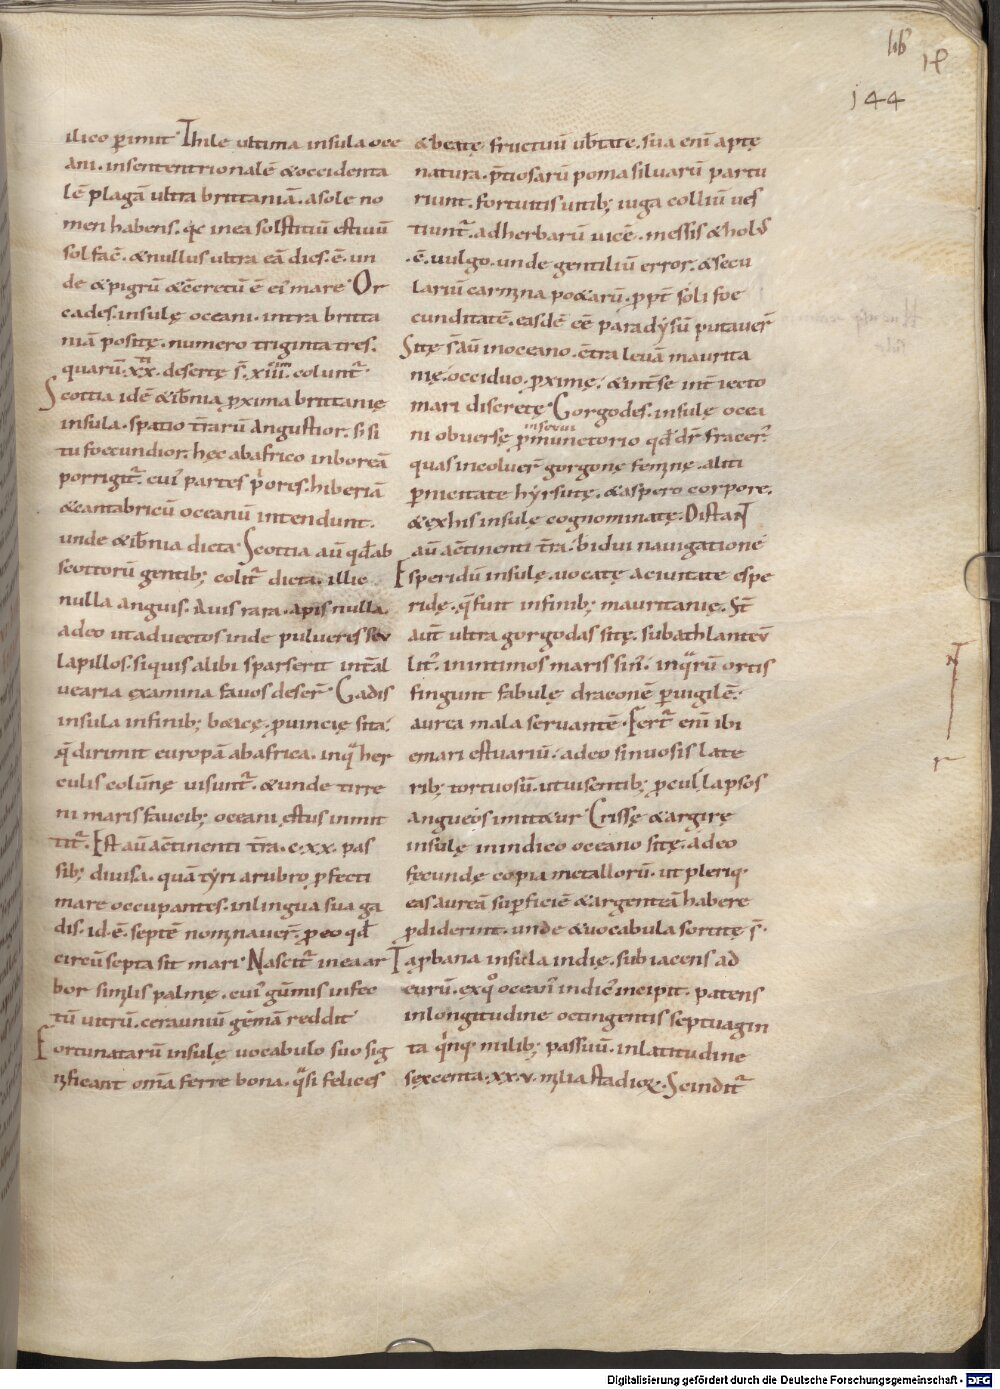 lib̄
144
ilico ꝑimit Thile ultima insula oce
ani. insententrionalē & occidenta
lē plagā ultra brittaniā. a sole no
men habens. qc̄ in ea solstitiū estiuū
sol facē. & nullus ultra eā dies. ē. un
de & pigrū & c̄cretū ē ei᾽ mare Or
cades. insulę oceani. intra britta
niā positę. numero triginta tres.
quarū. xx. desertę s̄. xiii. colunt᷑
Scottia idē & ib̄nia ꝓxima brittanię
insula. spatio t̄rarū angustior. s; si
tu foecundior. hęc ab africo in boreā
porrigit᷑. cui᾽ partes p̄ores. hiberiā
& cantabricū oceanū intendunt.
unde & ib̄nia dicta. Scottia aū qd̄ ab
scottorū gentib; colit᷑ dicta. illic
nulla anguis. auis rara. apis nulla.
adeo ut aduectos inde pulueres seu
lapillos. si quis alibi sparserit int̄ al
uearia examina fauos deser̄. Gadis
insula in finib; b&icę. ꝓuincię sita.
q̄ dirimit europā ab africa. in q̄ her
culis colūnę uisunt᷑. & unde tirre
ni maris faucib; oceani ęstus inmit
tit᷑. Est aū ac̄tinenti t̄ra. c.xx. pas
sib; diuisa. quā tyri a rubro ꝓfecti
mare occupantes. in lingua sua ga
dis. id. ē. septē nominauer̄. ꝓ eo qd̄
circū septa sit mari. Nascit᷑ in ea ar
bor similis palmę. cui᾽ gūmis infec
tū uitrū. cerauniū gēmā reddit
Fortunatarū insulę uocabulo suo sig
nificant om̄a ferre bona. q̄si felices
& beatę fructuū ub̄tate. sua eni᷑ aptę
natura. p̄tiosarū poma siluarū partu
riunt. fortuitis uitib; iuga colliū ues
tiunt᷑. ad herbarū uicē. messis & hol᾽
.ē. uulgo. unde gentiliū error. & secu
lariū carmina po&arū. ꝓpt̄ soli foe
cunditatē. easdē eē paradysū putauer̄
Sitę s̄ aū in oceano. c̄tra leuā maurita
nię. occiduo. ꝓximę. & int̄ se int̄iecto
mari discretę. Gorgodes. insulę ocea
ni obuersę ꝓmunctorio qd̄ dr̄ fracer᷑
quas incoluer̄ gorgonę feminę. aliti
ꝑnicitate hyrsutę. & aspero corpore.
& ex his insulę cognominatę. Distant
aū ac̄tinenti t̄ra. bidui nauigatione
Esperidū insulę. uocatę a ciuitate espe
ridę. q̄ fuit in finib; mauritanię. St̄
aut̄ ultra gorgodas sitę. sub athlanteū
lit᷑. in intimos maris sin᷑. in q̄rū ortis
fingunt fabulę draconē ꝑuigilē.
aurea mala seruantē. Fert᷑ eni᷑ ibi
e mari estuariū. adeo sinuosis late
rib; tortuosū. ut uisentib; ꝓcul lapsos
angueos imit&ur Crissę & argirę
insulę in indico oceano sitę. adeo
fęcundę copia metallorū. ut pleriq.
eas aureā suꝑficiē & argenteā habere
ꝓdiderint. unde & uocabula sortitę s̄.
Tapbana insula indię. subiacens ad
eurū. ex q̊ ocean᾽ indic᾽ incipit. patens
in longitudine octingentis septuagin
ta q̄nq. milib; passuū. in latitudine
sęxcenta. xx.v. milia stadioꝝ. Scindit᷑